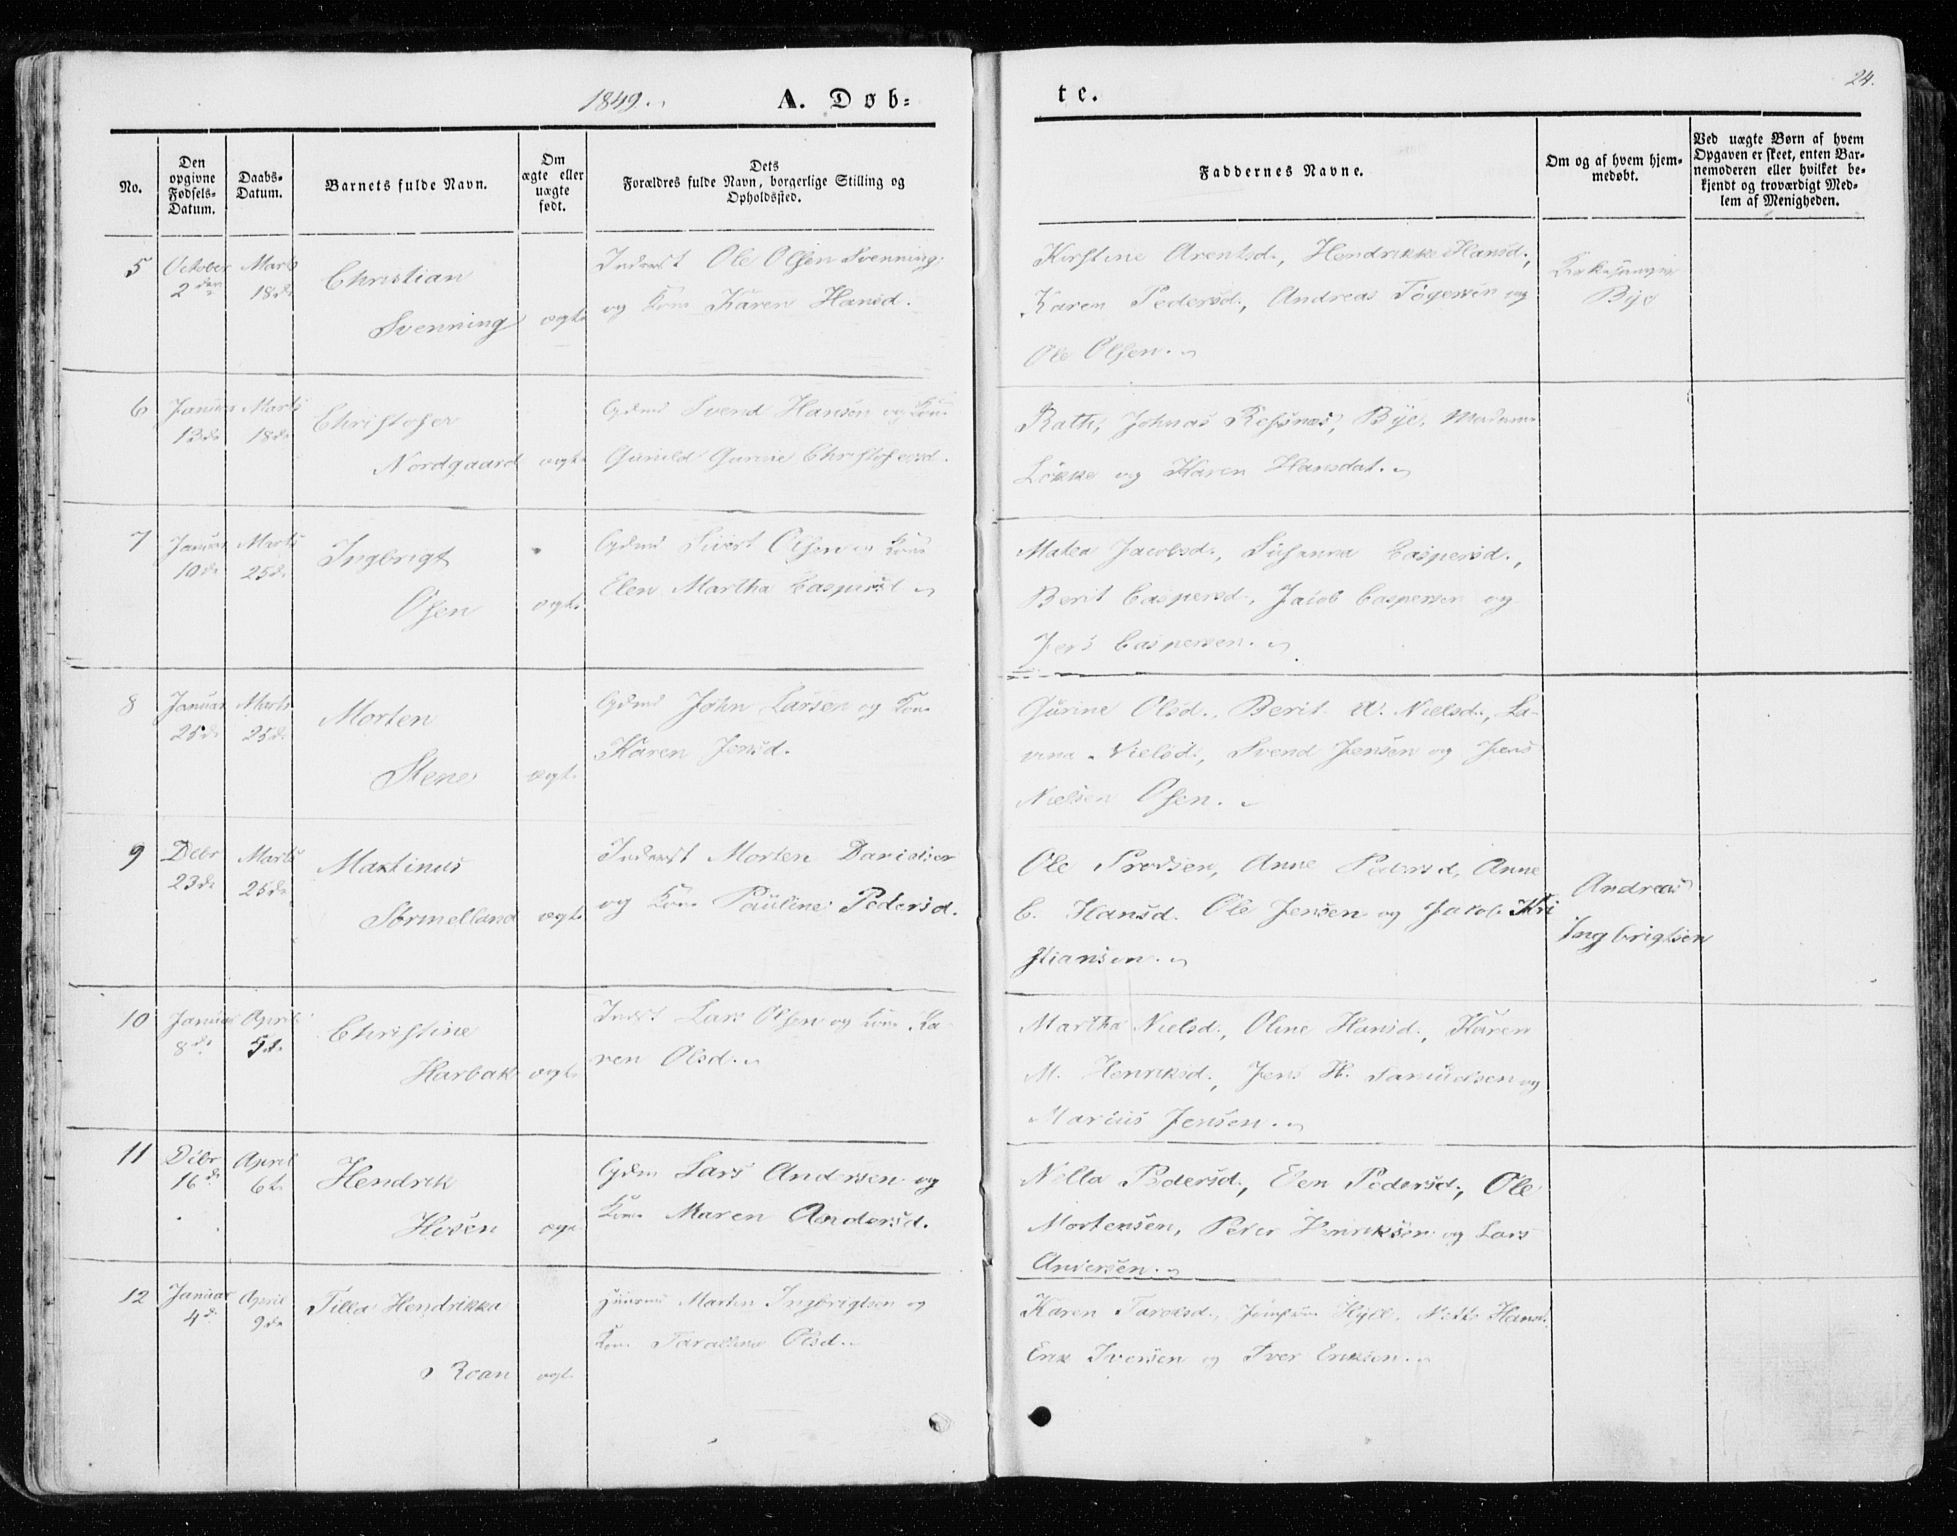 1849.
A. Døb=
te.
24.
No.
Den
opgivne
Fødsels=
Datum.
Daabs=
Datum.
Barnets fulde Navn.
Om
ægte eller
uægte
født.
Dets
Forældres fulde Navn, borgerlige Stilling og
Opholdssted.
Faddernes Navne.
Om og af hvem hjem=
medøbt.
Ved uægte Børn af hvem
Opgaven er skeet, enten Bar=
nemoderen eller hvilket be=
kjendt og troværdigt Med=
lem af Menigheden.
5
October
2den
Marts
18de
Christian
Svenning
ægte
Inderst Ole Olsen Svenning
og Kone Karen Hansd.
Kirstine Arentsd., Hendrikke Hansd.,
Karen Pedersd., Andreas Togersen og
Ole Olsen.
Kirkesanger
Bye
6
Januar
13de
Marts
18de
Christofer
Nordgaard
ægte
Gdmd Svend Hansen og Kone
Gunild Gurine Christofersd.
Rath, Johnas Refsnes, Bye, Madame
Løkke og Karen Hansdat.
7
Januar
10de
Marts
25de
Ingbrigt
Osen
ægte
Gdmd Sivert Olsen og Kone
Elen Martha Caspersd
Malea Jacobsd., Susanna Caspersd.,
Berit Caspersd., Jacob Caspersen og
Jens Caspersen.
8
Januar
25de
Marts
25de
Morten
Stene
ægte
Gdmd John Larsen og Kone
Karen Jensd.
Gurine Olsd., Berit A. Nielsd., La-
vina Nielsd., Svend Jensen og Jens
Nielsen Osen.
9
Debr
23de
Marts
25de
Martinus
Sørmelland
ægte
Inderst Morten Danielsen
og Kone Pauline Pedersd.
Ole Frodsen, Anne Pedersd, Anne
C. Hansd. Ole Jensen og Jakob Kri
stiansen.
Andreas
Ingbrigtsen
10
Januar
8de
April
5te
Christine
Harbak
ægte
Indst Lars Olsen og Kone Ka-
ren Olsd.
Martha Nielsd., Oline Hansd., Karen
M. Henriksd., Jens H. Samuelsen og
Marius Jensen.
11
Debr
16de
April
6te
Hendrik
Hosen
ægte
Gdm Lars Andersen og
Kone Maren Andersd.
Nella Pedersd., Elen Pedersd., Ole
Mortensen, Peter Henriksen og Lars
Andersen.
12
Januar
4de
April
9de
Tilla Hendrikka
Roan
ægte
Martin Ingbrigtsen og
Kone Taraline Olsd.
Karen Taraldsd., Jomfrue Hÿll, Mette Hansd.
Erik Iversen og Iver Eriksen.